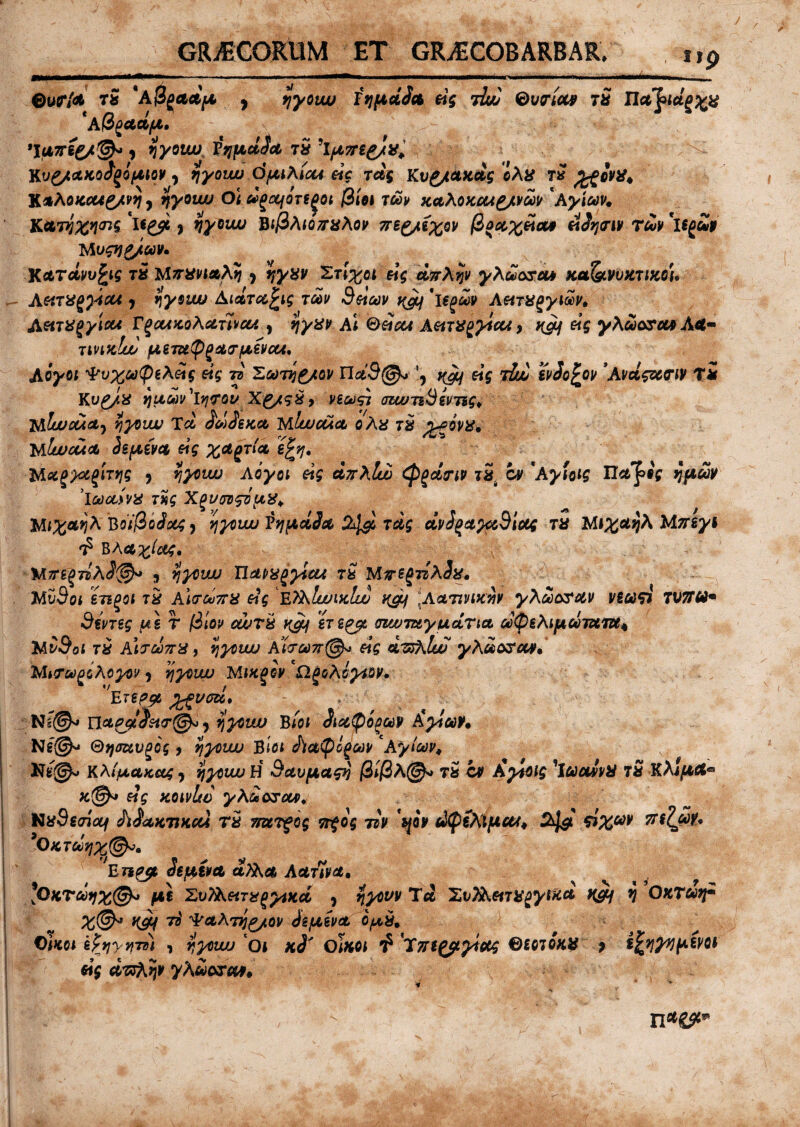 GRÆCORUM ET GRÆCOBARBAR. 119
Θυσία τȣ Ἀβραὰμ , ἤγουν ῥημάδα εἰς τὴν Θυσίαν τȣ Πατριάρχȣ
Ἀβραάμ.
Ἰμπέριος , ἤγουν ῥημάδα τȣ Ἰμπερίȣ.
Κυριακοδρόμιον , ἤγουν ὁμιλίαι εἰς τὰς Κυριακὰς ὅλȣ τȣ χρόνȣ.
Καλοκαιρινὴ , ἤγουν Οἱ ὡραιότεροι βίοι τῶν καλοκαιρινῶν Ἁγίων.
Κατήχησις Ἱερὰ , ἤγουν Βιβλιόπȣλον περιέχον βραχεῖαν εἴδησιν τῶν Ἱερῶν
Μυστηρίων.
Κατάνυξις τȣ Μπȣνιαλῆ , ἤγȣν Στίχοι εἰς ἁπλῆν γλῶσσαν κατανυκτικοί.
Λειτȣργίαι , ἤγουν Διάταξις τῶν θείων καὶ Ἱερῶν Λειτȣργιῶν.
Λειτȣργίαι Γραικολατῖναι , ἤγȣν Αἱ Θεῖαι Λειτȣργίαι , καὶ εἰς γλῶσσαν Λα-
τινικὴν μεταφρασμέναι.
Λόγοι Ψυχωφελεῖς εἰς τὸ Σωτήριον Πάθος , καὶ εἰς τὴν ἔνδοξον Ἀνάστασιν τȣ
Κυρίȣ ἡμῶν Ἰησοῦ Χριστȣ , νεωστὶ συντεθέντες.
Μηναῖα, ἤγουν Τὰ δώδεκα Μηναῖα ὅλȣ τȣ χρόνȣ.
Μηναῖα δεμένα εἰς χαρτία ἕξη.
Μαργαρίτης , ἤγουν Λόγοι εἰς ἁπλὴν φράσιν τȣ ἐν Ἁγίοις Πατρὸς ἡμῶν
Ἰωάννȣ τȣς Χρυσοστόμȣ.
Μιχαὴλ Βοϊβόδας , ἤγουν ῥημάδα διὰ τὰς ἀνδραγαθίας τȣ Μιχαὴλ Μπέγι
τῆς Βλαχίας.
Μπερτόλδος , ἤγουν Πανȣργίαι τȣ Μπερτόλδȣ.
Μῦθοι ἕτεροι τȣ Αἰσώπȣ εἰς Ἑλληνικὴν καὶ Λατινικὴν γλῶσσαν νεωστὶ τυπω-
θέντες μὲ τ βίον αὐτȣ καὶ ἕτερα συνταγμάτια ὠφελιμώτατα.
Μῦθοι τȣ Αἰσώπȣ , ἤγουν Αἴσωπος εἰς ἁπλὴν γλῶσσαν.
Μισωρόλογον , ἤγουν Μικρὸν Ὡρολόγιον.
Ἕτερα χρυσά.
Νέος Παράδεισος , ἤγουν Βίοι διαφόρων Ἁγίων.
Νέος Θησαυρὸς , ἤγουν Βίοι διαφόρων Ἁγίων.
Νέος Κλίμακας , ἤγουν Ἡ θαυμαστὴ βίβλος τȣ ἐν Ἁγίοις Ἰωάννȣ τȣ Κλίμα-
κος εἰς κοινὴν γλῶσσαν.
Νȣθεσίαι διδακτικαὶ τȣ πατρὸς πρὸς τὸν ἡὸν ὠφέλιμαι, διὰ στίχων πεζῶν.
Ὀκτώηχος.
Ἕτερα δεμένα ἀλλα Λατῖνα.
Ὀκτώηχος μὲ Συλλειτȣργικά , ἤγουν Τὰ Συλλειτȣργικὰ καὶ ἡ Ὀκτώη-
χος καὶ τὸ Ψαλτήριον δεμένα ὁμȣ.
Οἶκοι ἐξηγητοὶ , ἤγουν Οἱ κδʹ Οἶκοι τῆς Ὑπεραγίας Θεοτόκȣ , ἐξηγημένοι
εἰς ἁπλῆν γλῶσσαν.
Παρα-